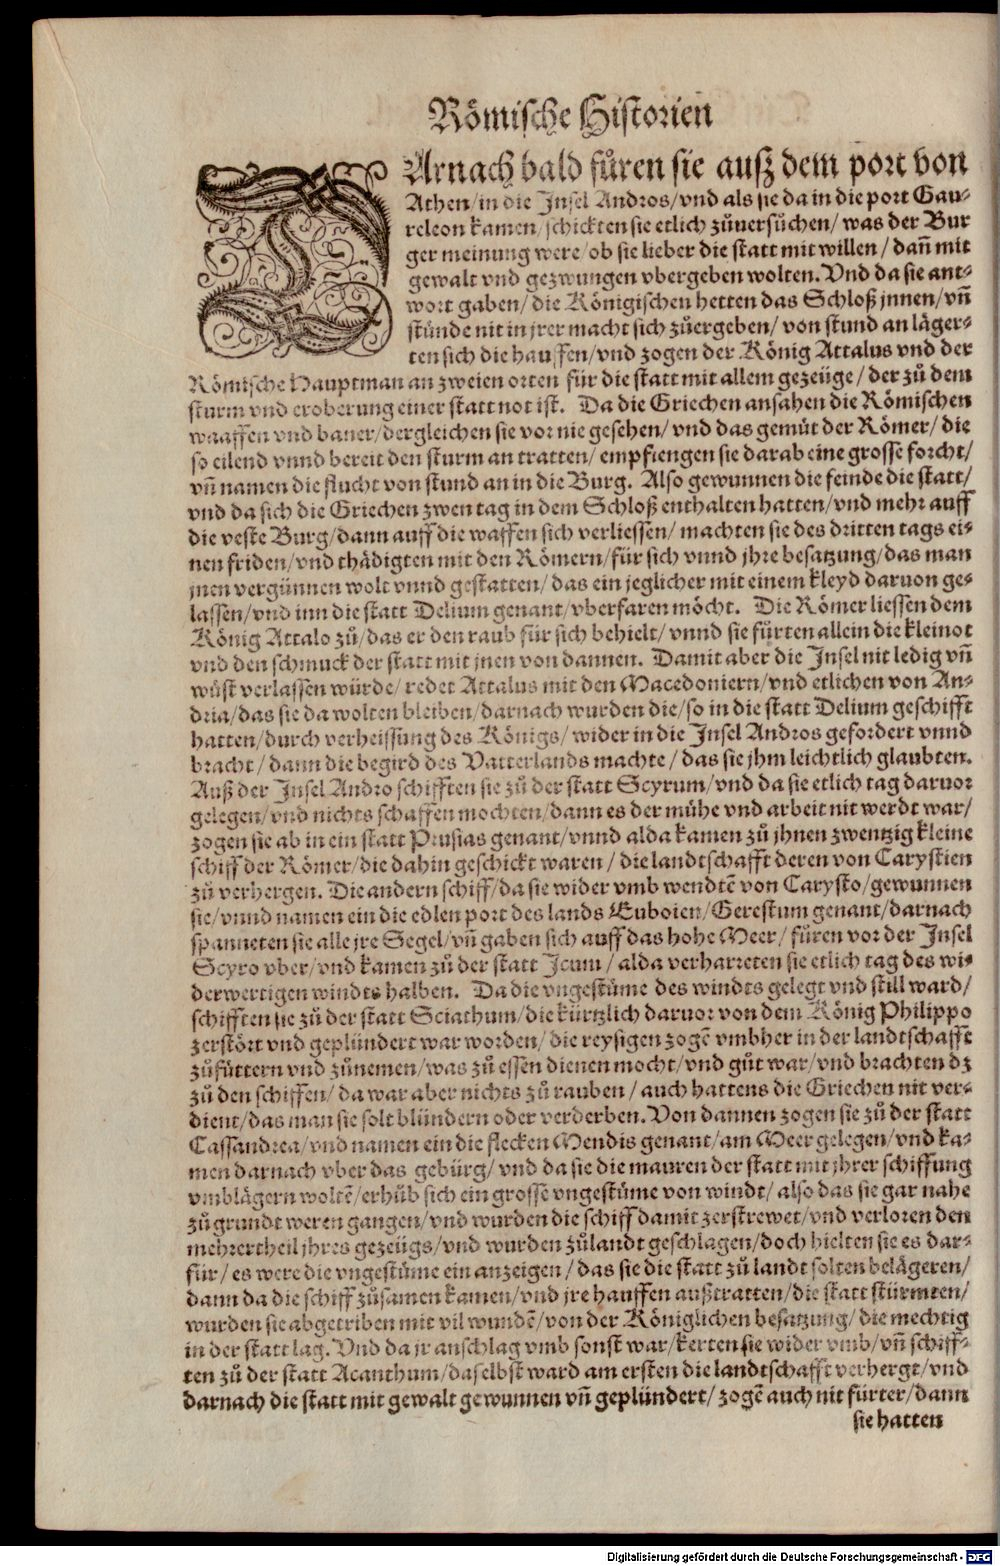 Römische Historien
DArnach bald fůren sie auß dem port von
Athen/ in die Insel Andros/ vnd als sie da in die port Gau-
releon kamen/ schickten sie etlich zůuersůchen/ was der Bur
ger meinung were/ ob sie lieber die statt mit willen/ dañ mit
gewalt vnd gezwungen vbergeben wolten. Vnd da sie ant-
wort gaben/ die Königischen hetten das Schloß jnnen/ vñ
stůnde nit in jrer macht sich zůergeben/ von stund an läger-
ten sich die hauffen/ vnd zogen der König Attalus vnd der
Römische Hauptman an zweien orten für die statt mit allem gezeüge/ der zů dem
sturm vnd eroberung einer statt not ist. Da die Griechen ansahen die Römischen
waaffen vnd baner/ dergleichen sie vor nie gesehen/ vnd das gemüt der Römer/ die
so eilend vnnd bereit den sturm an tratten/ empfiengen sie darab eine grosse forcht/
vñ namen die flucht von stund an in die Burg. Also gewunnen die feinde die statt/
vnd da sich die Griechen zwen tag in dem Schloß enthalten hatten/ vnd mehr auff
die veste Burg/ dann auff die waffen sich verliessen/ machten sie des dritten tags ei-
nen friden/ vnd thädigten mit den Römern/ für sich vnnd jhre besatzung/ das man
jnen vergünnen wolt vnnd gestatten/ das ein jeglicher mit einem kleyd daruon ge-
lassen/ vnd inn die statt Delium genant/ vberfaren möcht. Die Römer liessen dem
König Attalo zů/ das er den raub für sich behielt/ vnnd sie fůrten allein die kleinot
vnd den schmuck der statt mit jnen von dannen. Damit aber die Insel nit ledig vñ
wüst verlassen würde/ redet Attalus mit den Macedoniern/ vnd etlichen von An-
dria/ das sie da wolten bleiben/ darnach wurden die/ so in die statt Delium geschifft
hatten/ durch verheissung des Königs/ wider in die Insel Andros gefordert vnnd
bracht/ dann die begird des Vatterlands machte/ das sie jhm leichtlich glaubten.
Auß der Insel Andro schifften sie zů der statt Scyrum/ vnd da sie etlich tag daruor
gelegen/ vnd nichts schaffen mochten/ dann es der mühe vnd arbeit nit werdt war/
zogen sie ab in ein statt Prusias genant/ vnnd alda kamen zů jhnen zwentzig kleine
schiff der Römer/ die dahin geschickt waren/ die landtschafft deren von Carystien
zů verhergen. Die andern schiff/ da sie wider vmb wendtẽ von Carysto/ gewunnen
sie/ vnnd namen ein die edlen port des lands Euboien/ Gerestum genant/ darnach
spanneten sie alle jre Segel/ vñ gaben sich auff das hohe Meer/ fůren vor der Insel
Scyro vber/ vnd kamen zů der statt Icum/ alda verharreten sie etlich tag des wi-
derwertigen windts halben. Da die vngestüme des windts gelegt vnd still ward/
schifften sie zů der statt Sciathum/ die kürtzlich daruor von dem König Philippo
zerstört vnd geplündert war worden/ die reysigen zogẽ vmbher in der landtschafft
zůfüttern vnd zůnemen/ was zů essen dienen mocht/ vnd gůt war/ vnd brachten dz
zů den schiffen/ da war aber nichts zů rauben/ auch hattens die Griechen nit ver-
dient/ das man sie solt blündern oder verderben. Von dannen zogen sie zů der statt
Cassandrea/ vnd namen ein die flecken Mendis genant/ am Meer gelegen/ vnd ka-
men darnach vber das gebürg/ vnd da sie die mauren der statt mit jhrer schiffung
vmblägern woltẽ/ erhůb sich ein grosse vngestüme von windt/ also das sie gar nahe
zů grundt weren gangen/ vnd wurden die schiff damit zerstrewet/ vnd verloren den
mehrertheil jhres gezeügs/ vnd wurden zů landt geschlagen/ doch hielten sie es dar-
für/ es were die vngestüme ein anzeigen/ das sie die statt zů landt solten belägeren/
dann da die schiff zůsamen kamen/ vnd jre hauffen außtratten/ die statt stürmten/
wurden sie abgetriben mit vil wundẽ/ von der Königlichen besatzung/ die mechtig
in der statt lag. Vnd da jr anschlag vmb sonst war/ kerten sie wider vmb/ vñ schiff-
ten zů der statt Acanthum/ daselbst ward am ersten die landtschafft verhergt/ vnd
darnach die statt mit gewalt gewunnen vñ geplündert/ zogẽ auch nit fürter/ dann
sie hatten
Digitalisierung gefördert durch die Deutsche Forschungsgemeinschaft - DFG